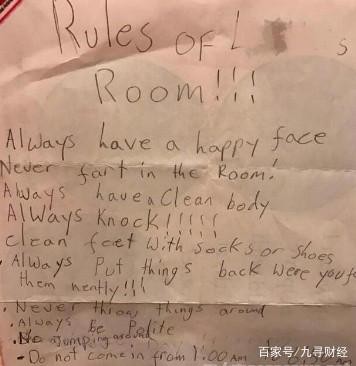 Rules OF L s
Room!!!
Always have a happy face
Never fart in the Room!
Always have a Clean body
Always Knock!!!!!
Clean feet with socks or shoes
• Always Put things back were you
them neatly!!!
• Never throw things around
• Always be Polite
• No Jumping around
- Do not come in from 1:00 AM to
百家号/九寻财经